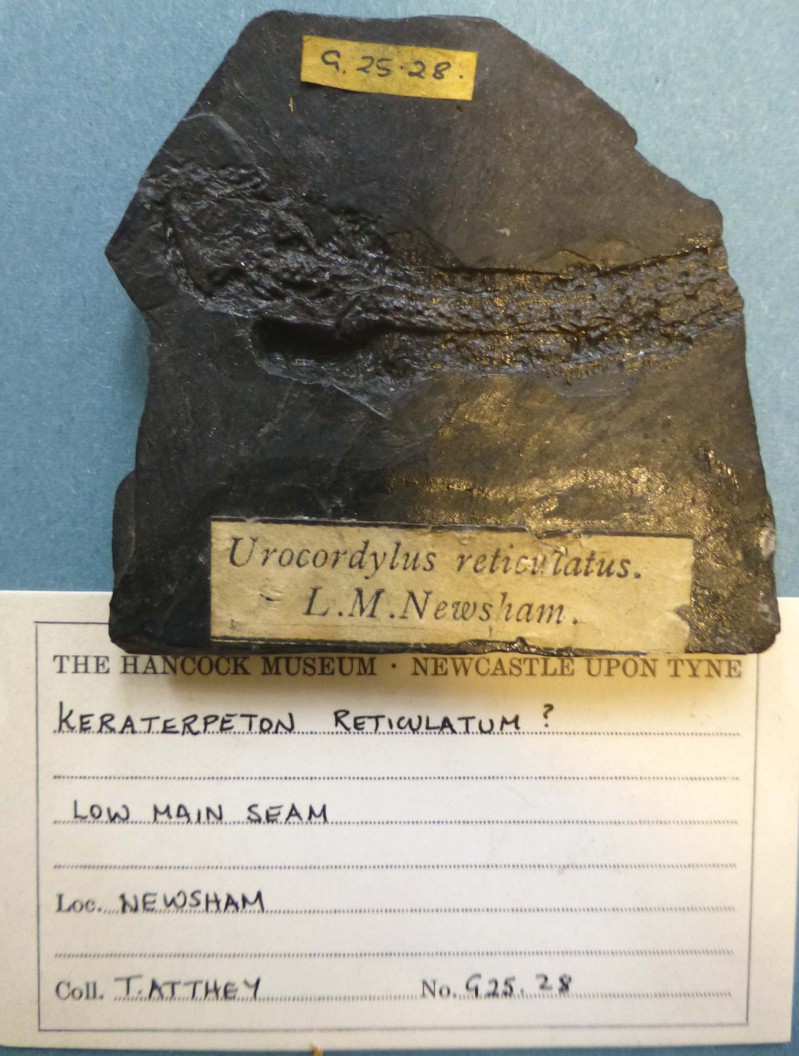 G. 25.28.
Urocordylus reticulatus.
L.M.Newsham.
THE HANCOCK MUSEUM · NEWCASTLE UPON TYNE
KERATERPETON RETICULATUM ?
LOW MAIN SEAM
Loc. NEWSHAM
Coll. T. ATTHEY No. G25.28